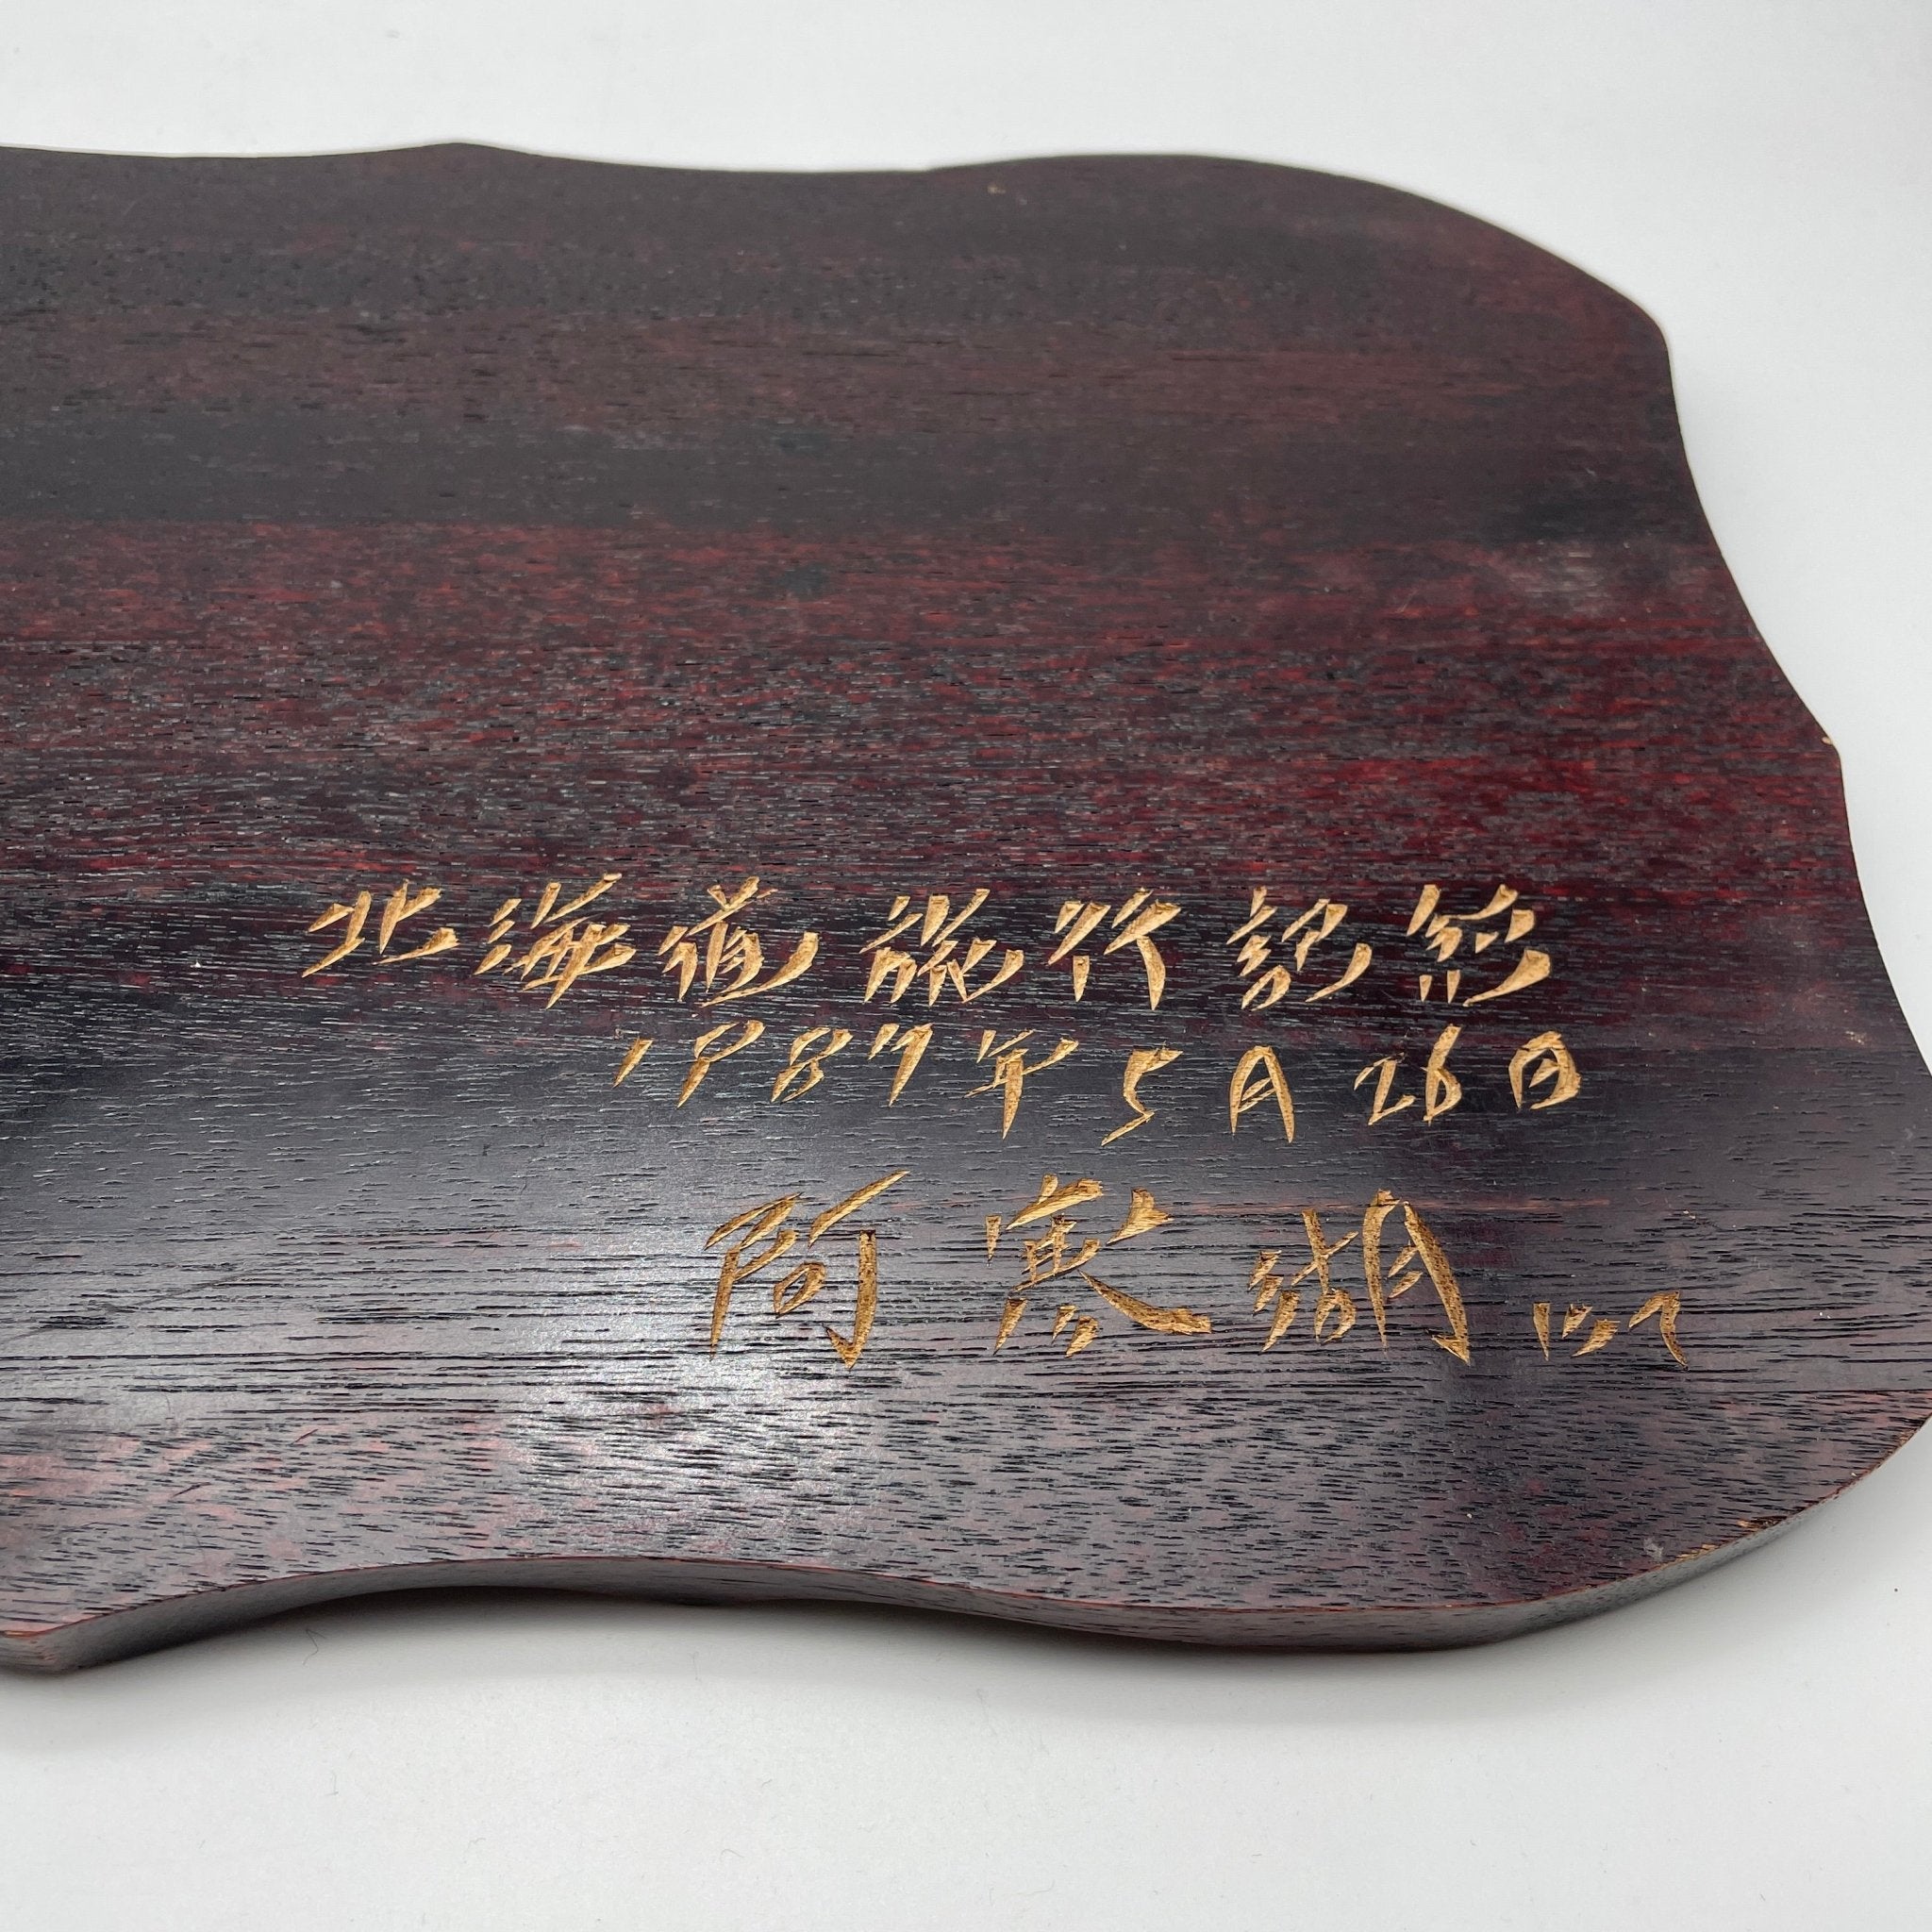 北海道旅行記念
1987年5月26日
阿寒湖にて